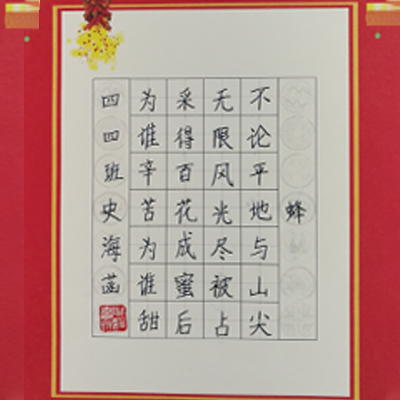 蜂
不论平地与山尖
无限风光尽被占
采得百花成蜜后
为谁辛苦为谁甜
四四班史海菡